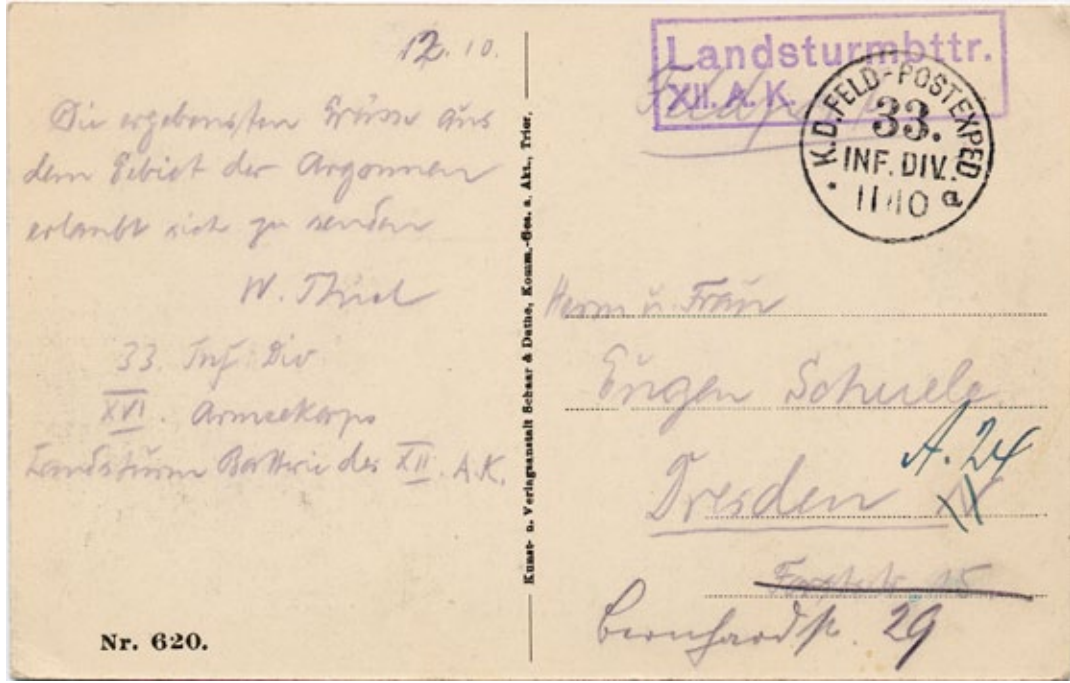 12.10.
Die ergebensten Grüsse aus
dem Gebiet der Argonnen
erlaubt sich zu senden
W. Thiel
33. Inf. Div
XVI. Armeekorps
Landsturm Batterie des XII. A.K.
Nr. 620.
Kunst- u. Verlagsanstalt Schaar & Dathe, Komm.-Ges. a. Akt., Trier.
Landsturmbttr.
XII. A. K.
Feldp
K.D. FELD-POSTEXPED
33.
INF. DIV.
11 10 a
Herrn u. Frau
Eugen Schuele
A. 24
Dresden
15
Bernhardstr. 29